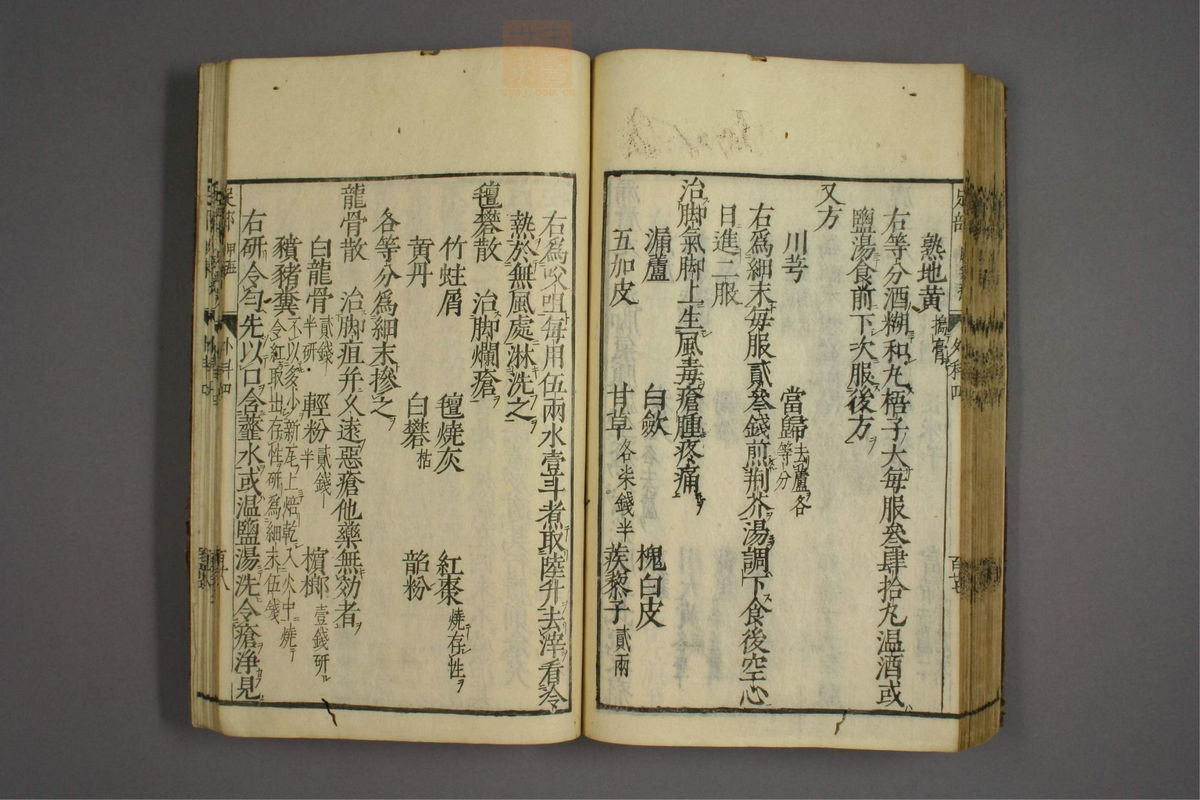 熟地黄搗膏
右等分酒糊和丸梧子大毎服叄肆拾丸温酒或
鹽湯食前下次服後方
又方
川芎 當歸去蘆各等分
右爲細末毎服貳叄錢煎荆芥湯調下食後空心
日進二服
治脚氣脚上生風毒瘡腫疼痛
漏蘆 白歛 槐白皮
五加皮 甘草各柒錢半 蒺藜子貳兩
右爲㕮咀毎用伍兩水壹斗煮取陸升去滓看冷
熱於無風處淋洗之
氊礬散 治脚爛瘡
竹蛀屑 氊燒灰 紅棗燒存性
黄丹 白礬枯 韶粉
各等分爲細末摻之
龍骨散 治脚疽并久遠惡瘡他藥無効者
白龍骨貳錢半研 輕粉貳錢半 檳榔壹錢研
豶豬糞不以多少新瓦上焙乾入火中燒令紅取出存性研爲細末伍錢
右研令匀先以口含虀水或温鹽湯洗令瘡浄見